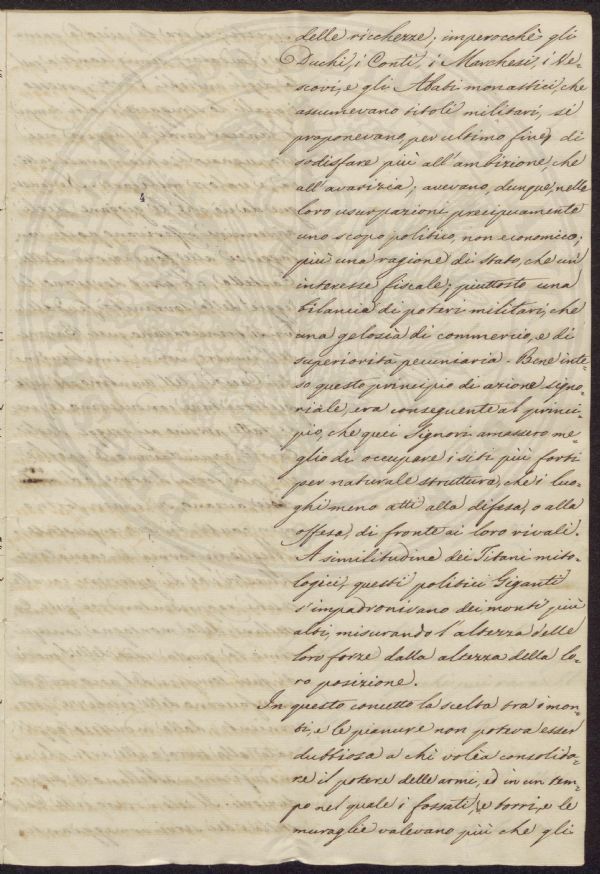 delle ricchezze; imperocchè gli
Duchi, i Conti, i Marchesi, i Ve=
scovi, e gli Abati monastici, che
assumevano titoli militari, si
proponevano, per ultimo fine, di
sodisfare più all'ambizione, che
all'avarizia; avevano, dunque, nelle
loro usurpazioni precipuamente
uno scopo politico, non economico;
più una ragione di stato, che un'
interesse fiscale; piuttosto una
bilancia di poteri militari, che
una gelosia di commercio, e di
superiorità pecuniaria. Bene inte=
so questo principio di azione signo=
riale, era conseguente al princi=
pio, che quei Signori amassero me=
glio di occupare i siti più forti
per naturale struttura, che i luo=
ghi meno atti alla difesa, o alla
offesa, di fronte ai loro rivali.
A similitudine dei Titani mito=
logici, questi politici Giganti
s'impadronivano dei monti più
alti, misurando l'altezza delle
loro forze dalla altezza della lo=
ro posizione.
In questo concetto la scelta tra i mon=
ti, e le pianure non poteva esser
dubbiosa a chi volea consolida=
re il potere delle armi, ed in un tem=
po nel quale i fossati, e torri, e le
muraglie valevano più che gli
4